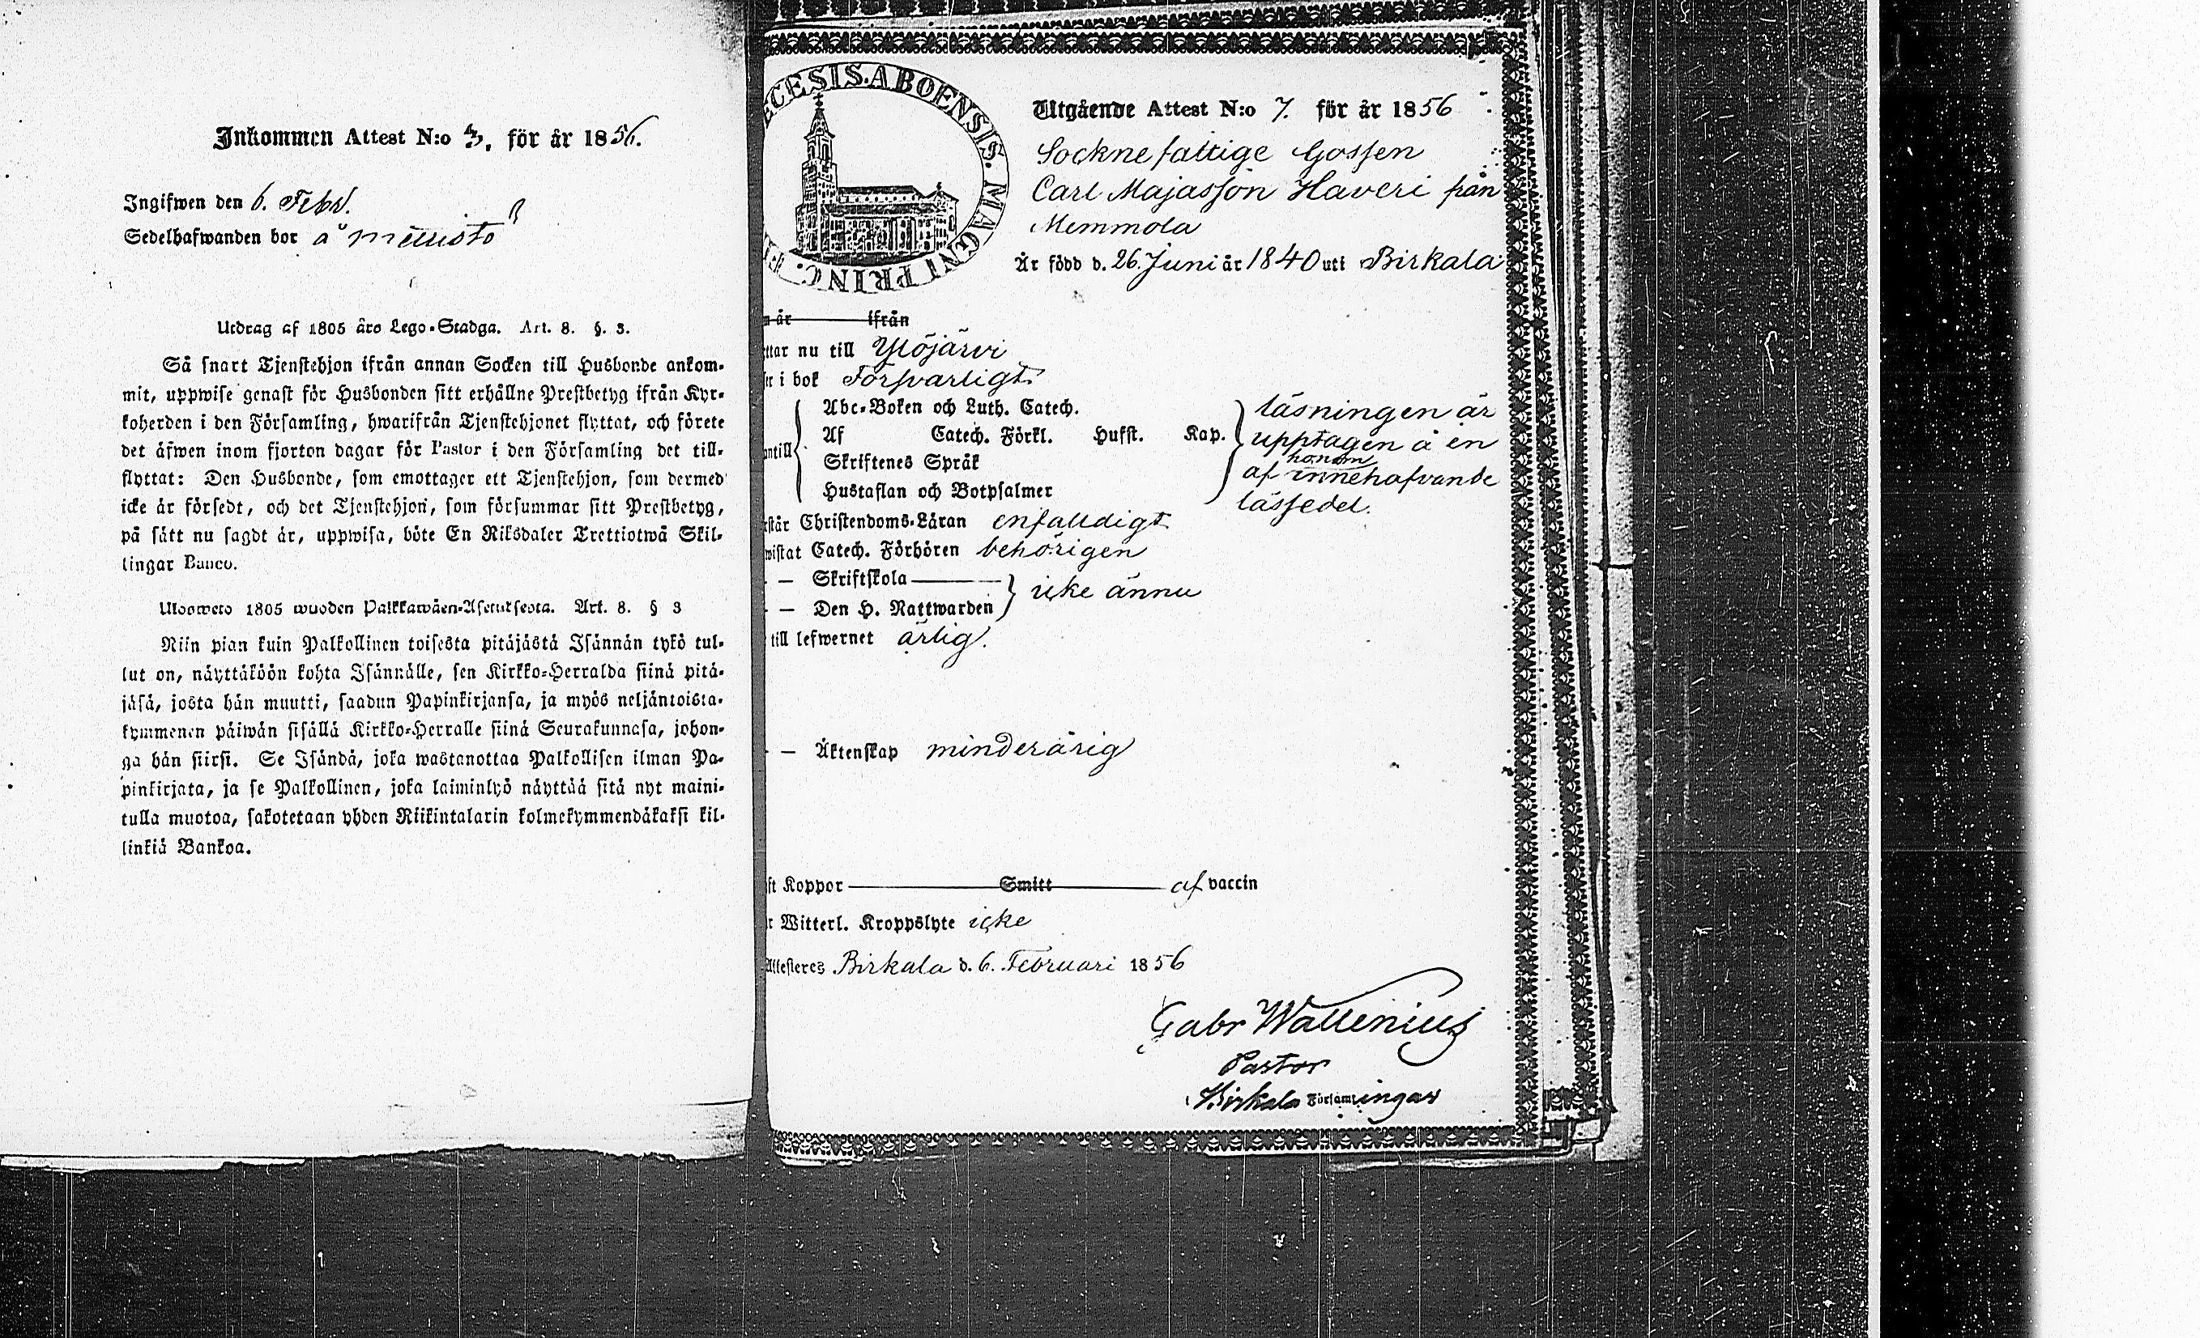 Inkommen Attest N:o 3, för år 1856.
Ingifwen den 6. Febr.
Sedelhafwanden bor å Mettisto
Utdrag af 1805 års Lego-Stadga. Art. 8. §. 3.
Så snart Tjenstehjon ifrån annan Socken till Husbonde ankom-
mit, uppwise genast för Husbonden sitt erhållne Prestbetyg ifrån Kyr-
koherden i den Församling, hwarifrån Tjenstehjonet flyttat, och förete
det äfwen inom fjorton dagar för Pastor i den Församling det till-
flyttat: Den Husbonde, som emottager ett Tjenstehjon, som dermed
icke är försedt, och det Tjenstehjon, som försummar sitt Prestbetyg,
på sätt nu sagdt är, uppwisa, böte En Riksdaler Trettiotwå Skil-
lingar Banco.
Ulosweto 1805 wuoden Palkkawäen-Asetuksesta. Art. 8. § 3
Niin pian kuin Palkollinen toisesta pitäjästä Isännän tykö tul-
lut on, näyttäköön kohta Isännälle, sen Kirkko-Herralda siinä pitä-
jäsä, josta hän muutti, saadun Papinkirjansa, ja myös neljäntoista-
kymmenen päiwän sisällä Kirkko-Herralle siinä Seurakunnasa, johon-
ga hän siirsi. Se Isändä, joka wastanottaa Palkollisen ilman Pa-
pinkirjata, ja se Palkollinen, joka laiminlyö näyttää sitä nyt maini-
tulla muotoa, sakotetaan yhden Riikintalarin kolmekymmendäkaksi kil-
linkiä Bankoa.
ECESIS. ABOENSIS. MAGNI PRINC. F
Utgående Attest N:o 7. för år 1856
Sockne fattige Gossen
Carl Majasson Haveri från
Memmola
Är född d. 26. Juni år 1840 uti Birkala
n år ifrån
ttar nu till Ylöjärvi
er i bok Försvarligt
Abc-Boken och Luth. Catech.
Af Catech. Förkl. Husst. Kap.
antill
Skriftenes Språk
Hustaflan och Botpsalmer
läsningen är
upptagen å en
honom
af innehafvande
lässedel.
rstår Christendoms-Läran enfalldigt
wistat Catech. Förhören behörigen
- - Skriftskola
- - Den H. Nattwarden
icke ännu
till lefwernet ärlig.
- - Äktenskap minderårig
ft Koppor Smitt af vaccin
r Witterl. Kroppslyte icke
Attesteres Birkala d. 6. Februari 1856
Gabr Wallenius
Pastor
Birkala Församlingar